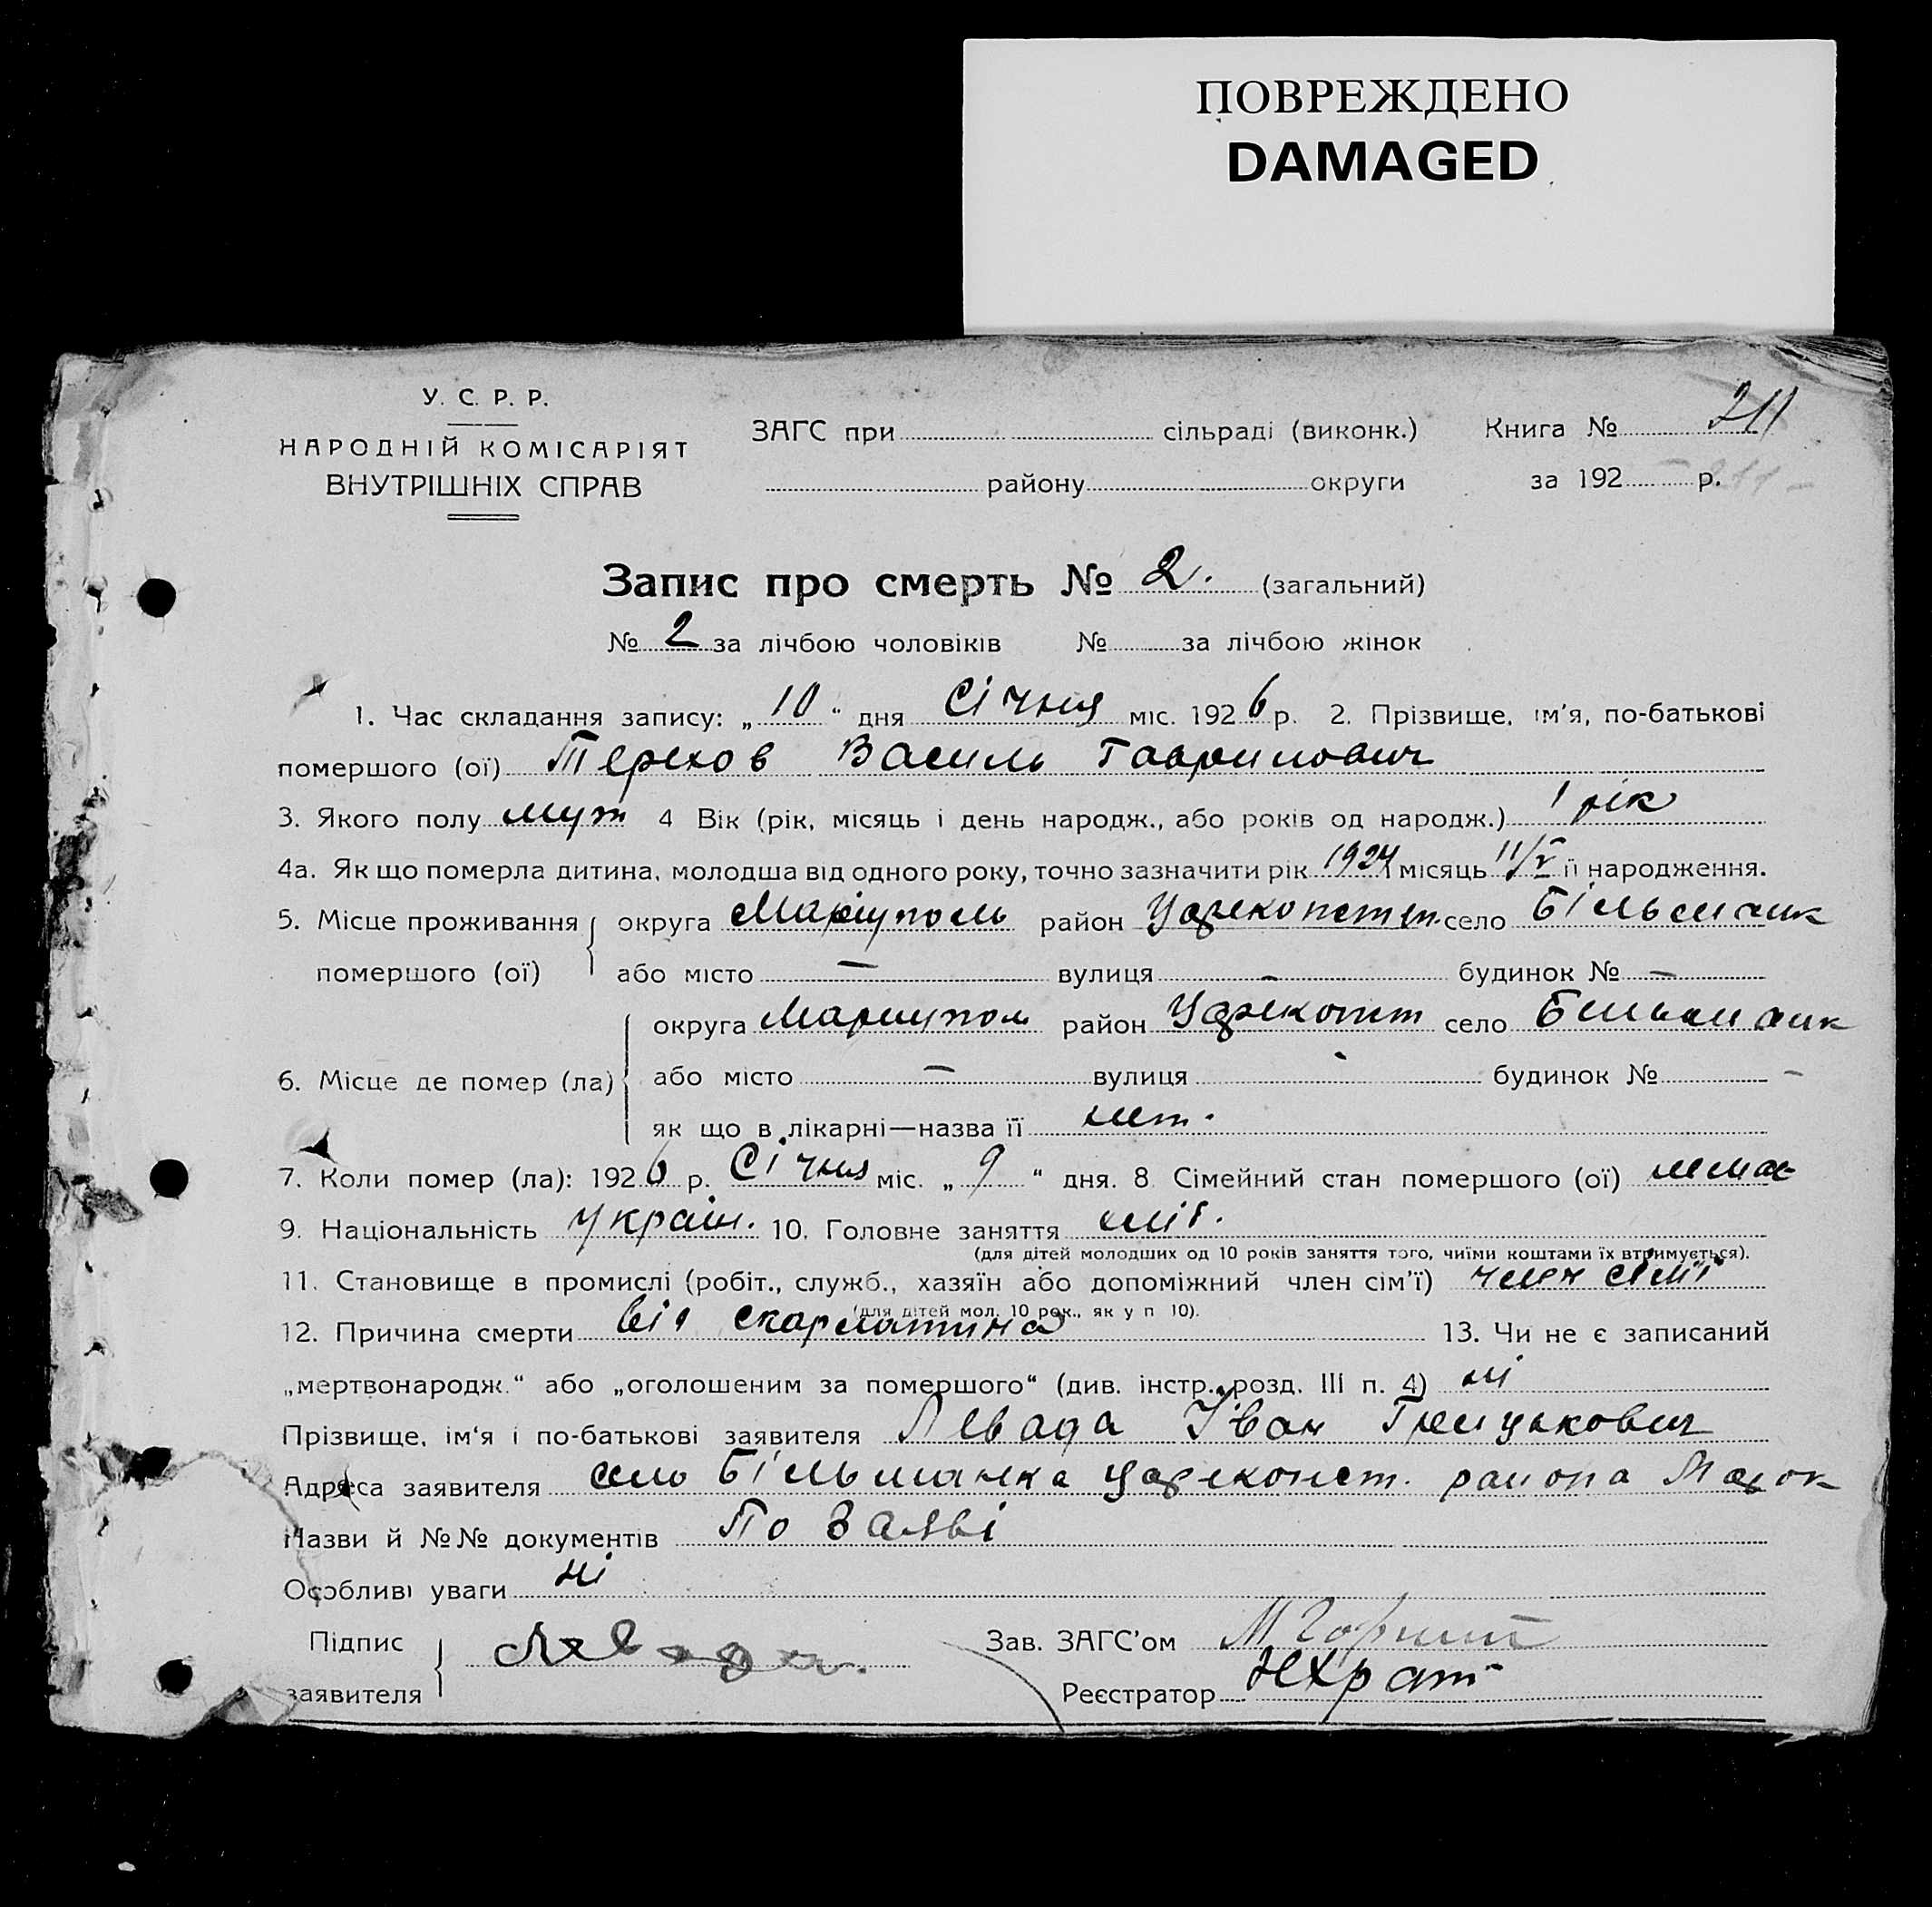 ПОВРЕЖДЕНО
DAMAGED
У. С. Р. Р.
НАРОДНІЙ КОМІСАРІЯТ
ВНУТРІШНІХ СПРАВ
ЗАГС при сільраді (виконк.) Книга № 211
району округи за 192 р.
Запис про смерть № 2. (загальний)
№ 2 за лічбою чоловіків № за лічбою жінок
1. Час складання запису: „10“ дня Січня міс. 1926 р. 2. Прізвище, ім'я, по-батькові
помершого (ої) Терехов Василь Гаврилович
3. Якого полу муж 4 Вік (рік, місяць і день народж., або років од народж.) 1 рік
4а. Як що померла дитина, молодша від одного року, точно зазначити рік 1924 місяць 11/V її народження.
5. Місце проживання округа Маріуполь район Цареконст. село Більманк
помершого (ої) або місто — вулиця - будинок № —
округа Мариупол район Цареконст село Бильманк
6. Місце де помер (ла) або місто — вулиця - будинок № -
як що в лікарні—назва її
7. Коли помер (ла): 1926 р. Січня міс. „9“ дня. 8 Сімейний стан помершого (ої)
9. Національність україн. 10. Головне заняття
(для дітей молодших од 10 років заняття того, чиїми коштами їх втримується).
11. Становище в промислі (робіт., служб., хазяїн або допоміжний член сім'ї) член сімї
(для дітей мол. 10 рок., як у п 10).
12. Причина смерти від скарлатина 13. Чи не є записаний
„мертвонародж.“ або „оголошеним за помершого“ (див. інстр. розд. III п. 4) ні
Прізвище, ім'я і по-батькові заявителя Левада Іван Грицькович
Адреса заявителя село Більманка Цареконст. района Мар ок
Назви й №№ документів По Заяві
Особливі уваги ні
Підпис заявителя Левада Зав. ЗАГС'ом
Реєстратор